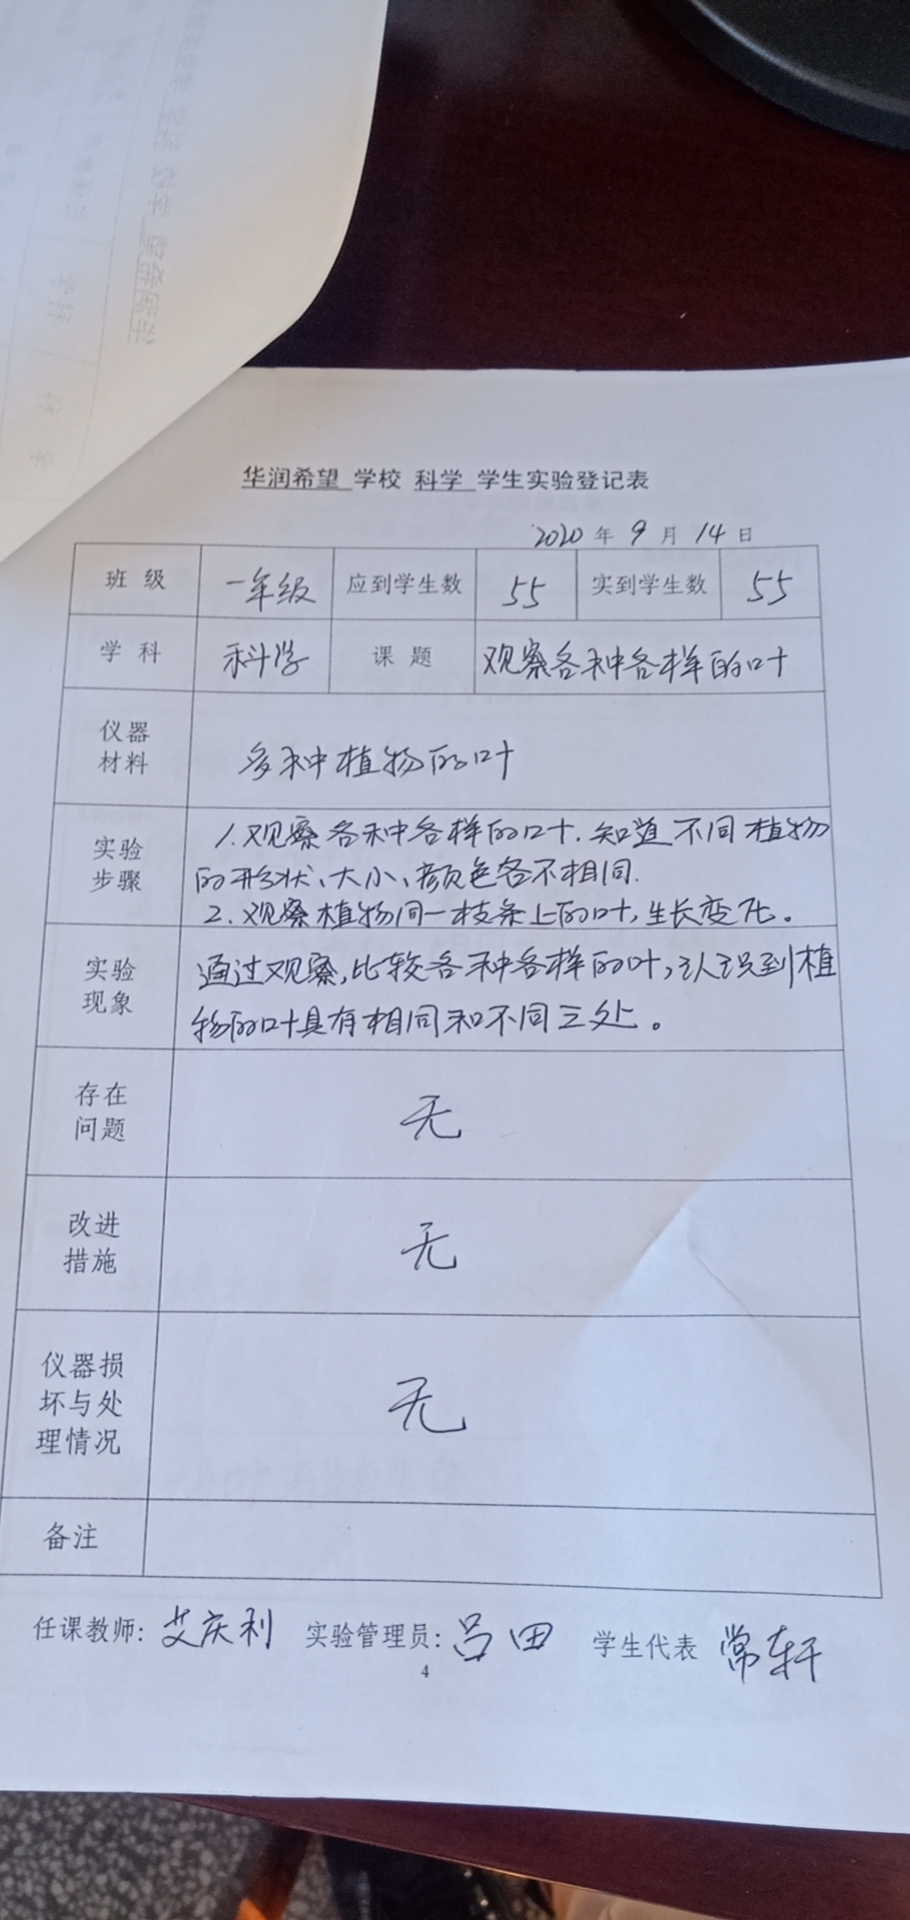 华润希望 学校 科学 学生实验登记表
2020 年 9 月 14 日
班 级 一年级 应到学生数 55 实到学生数 55
学 科 科学 课 题 观察各种各样的叶
仪器
材料
多种植物的叶
实验
步骤
1.观察各种各样的叶.知道不同植物
的形状、大小、颜色各不相同.
2.观察植物同一枝条上的叶,生长变化。
实验
现象
通过观察,比较各种各样的叶,认识到植
物的叶具有相同和不同之处。
存在
问题
无
改进
措施
无
仪器损
坏与处
理情况
无
备注
任课教师: 艾庆利 实验管理员: 吕田 学生代表 常轩
4